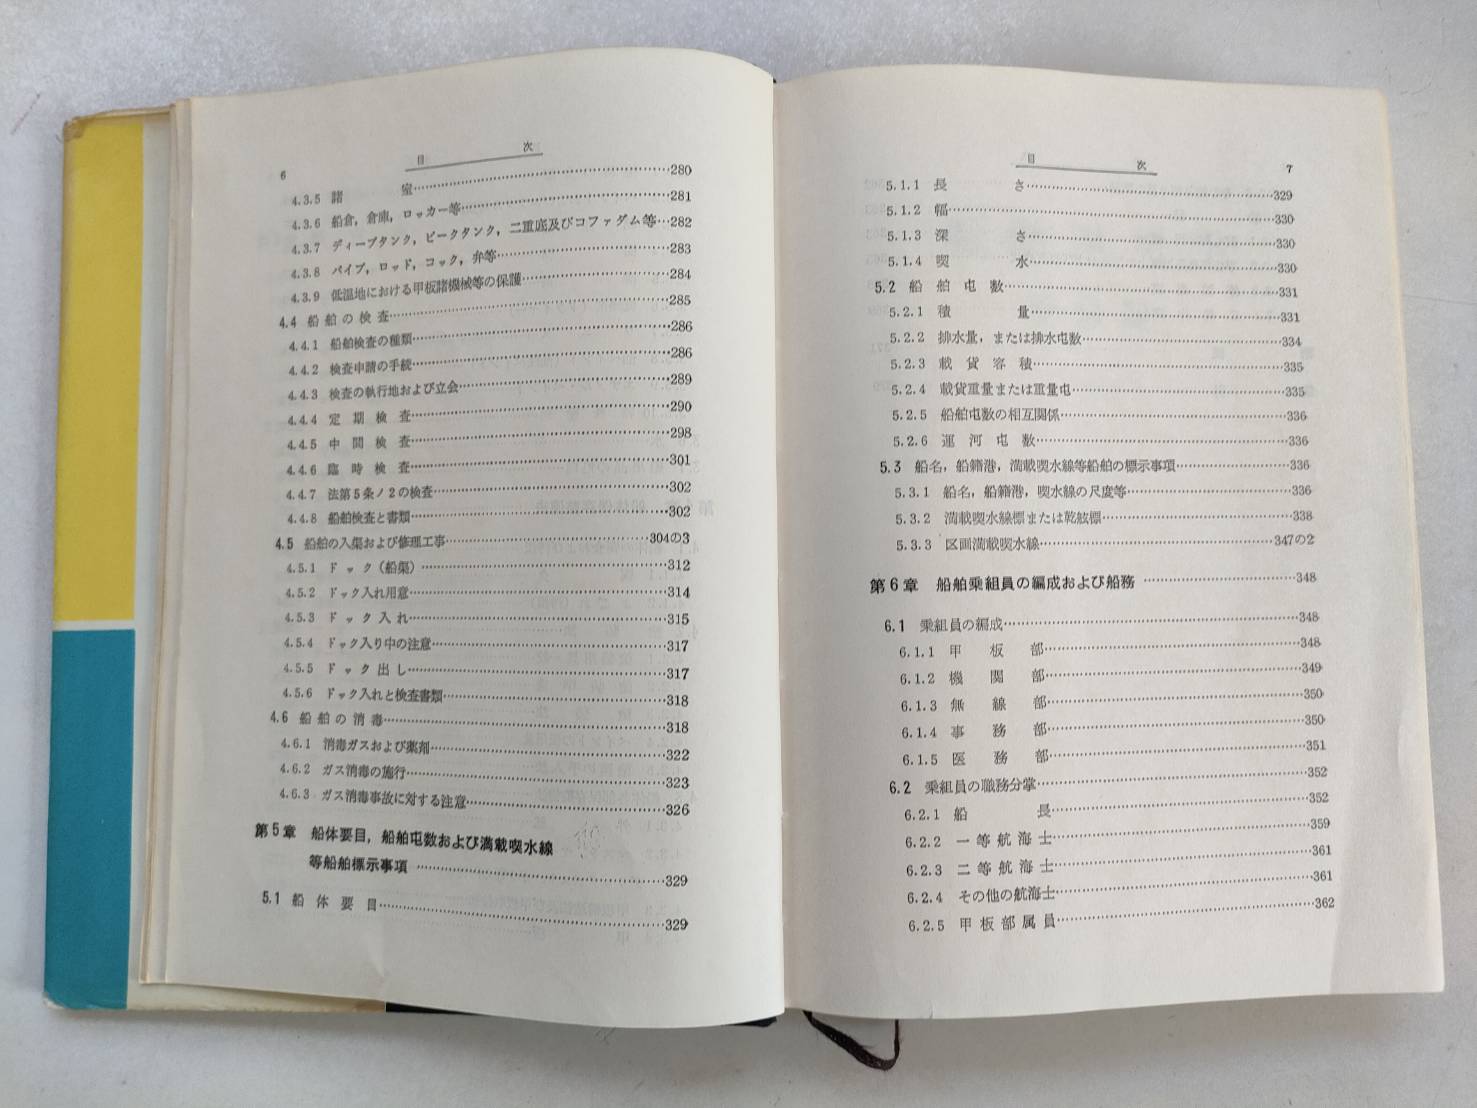 6 目 次
4.3.5 諸 室……280
4.3.6 船倉，倉庫，ロッカー等……281
4.3.7 ディープタンク，ピークタンク，二重底及びコファダム等…282
4.3.8 パイプ，ロッド，コック，弁等……283
4.3.9 低温地における甲板諸機械等の保護……284
4.4 船舶の検査……285
4.4.1 船舶検査の種類……286
4.4.2 検査申請の手続……286
4.4.3 検査の執行地および立会……289
4.4.4 定期検査……290
4.4.5 中間検査……298
4.4.6 臨時検査……301
4.4.7 法第5条ノ2の検査……302
4.4.8 船舶検査と書類……302
4.5 船舶の入渠および修理工事……304の3
4.5.1 ドック（船渠）……312
4.5.2 ドック入れ用意……314
4.5.3 ドック入れ……315
4.5.4 ドック入り中の注意……317
4.5.5 ドック出し……317
4.5.6 ドック入れと検査書類……318
4.6 船舶の消毒……318
4.6.1 消毒ガスおよび薬剤……322
4.6.2 ガス消毒の施行……323
4.6.3 ガス消毒事故に対する注意……326
第5章 船体要目，船舶屯数および満載喫水線
等船舶標示事項……329
5.1 船体要目……329
目 次 7
5.1.1 長 さ……329
5.1.2 幅……330
5.1.3 深 さ……330
5.1.4 喫 水……330
5.2 船舶屯数……331
5.2.1 積 量……331
5.2.2 排水量，または排水屯数……334
5.2.3 載貨容積……335
5.2.4 載貨重量または重量屯……335
5.2.5 船舶屯数の相互関係……336
5.2.6 運河屯数……336
5.3 船名，船籍港，満載喫水線等船舶の標示事項……336
5.3.1 船名，船籍港，喫水線の尺度等……336
5.3.2 満載喫水線標または乾舷標……338
5.3.3 区画満載喫水線……347の2
第6章 船舶乗組員の編成および船務……348
6.1 乗組員の編成……348
6.1.1 甲板部……348
6.1.2 機関部……349
6.1.3 無線部……350
6.1.4 事務部……350
6.1.5 医務部……351
6.2 乗組員の職務分掌……352
6.2.1 船 長……352
6.2.2 一等航海士……359
6.2.3 二等航海士……361
6.2.4 その他の航海士……361
6.2.5 甲板部属員……362